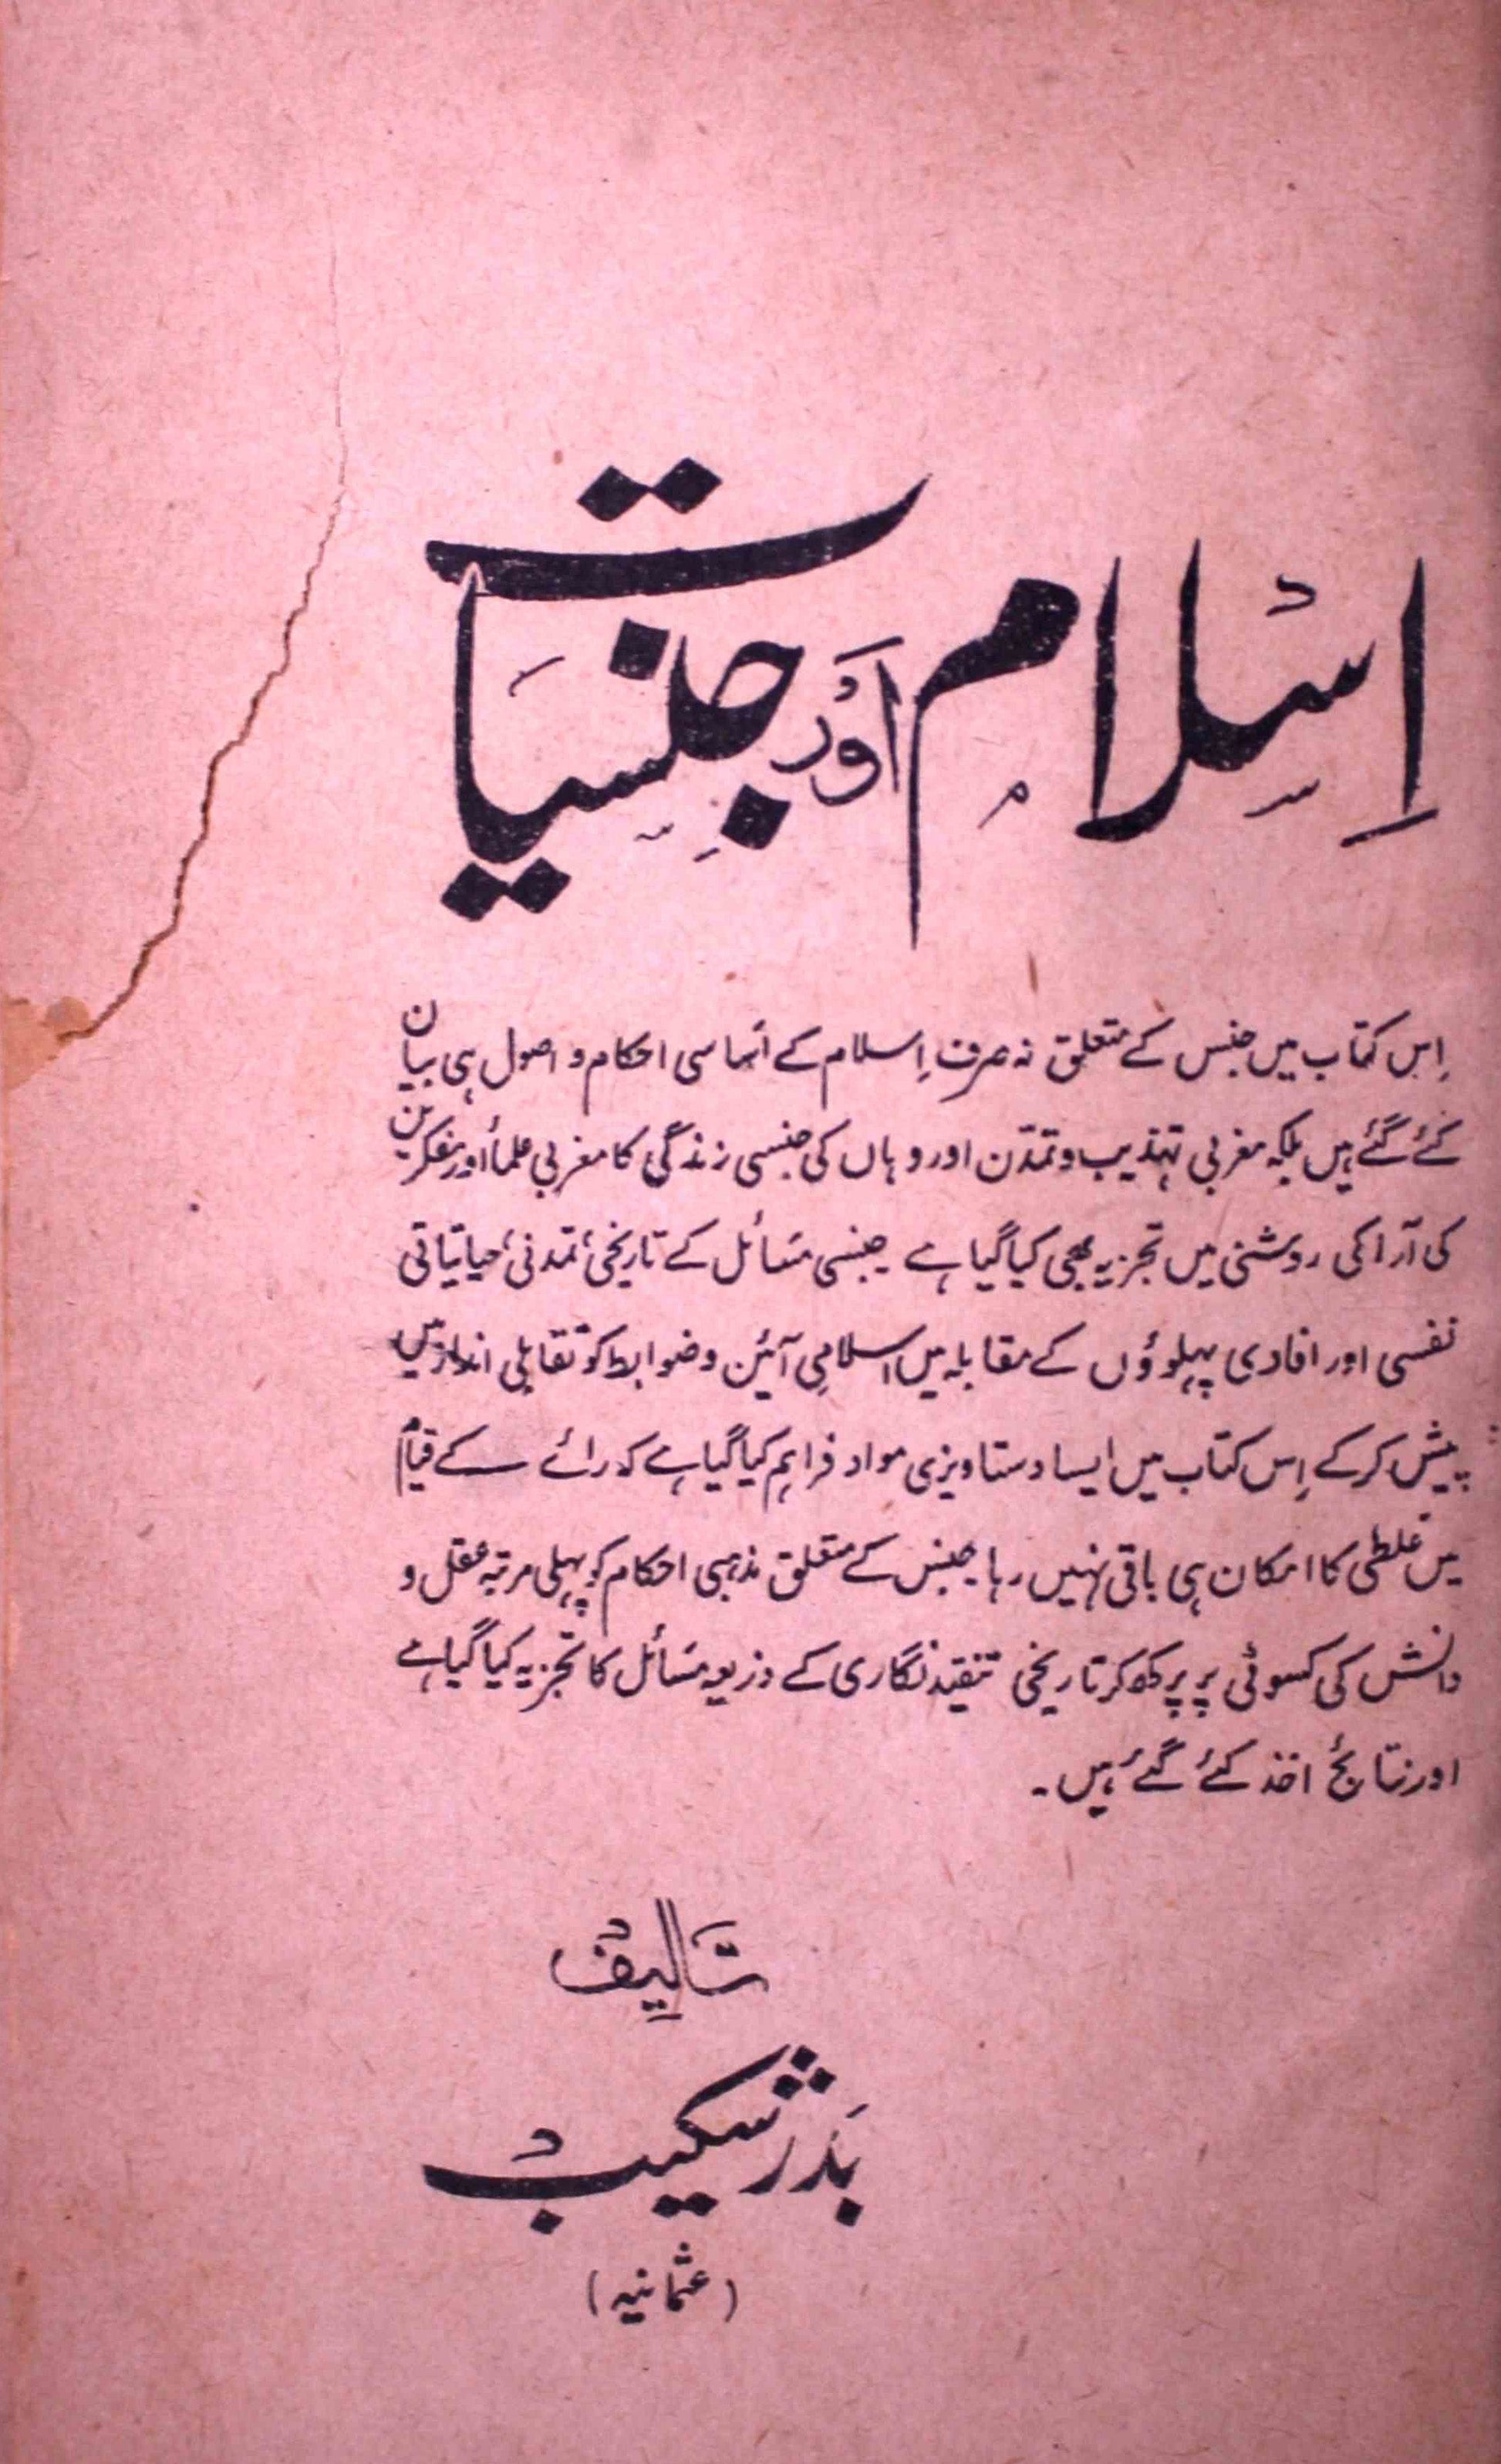 اِسلام اور جنسیات
اِس کتاب میں جنس کے متعلق نہ صرف اِسلام کے اساسی احکام و اصول ہی بیان
کئے گئے ہیں بلکہ مغربی تہذیب و تمدّن اور وہاں کی جنسی زندگی کا مغربی علماٗ اور مفکرین
کی آرا کی روشنی میں تجزیہ بھی کیا گیا ہے جنسی مسَائل کے تاریخی، تمدنی، حیاتیاتی
نفسی اور افادی پہلوؤں کے مقابلہ میں اسلامی آئین و ضوابط کو تقابلی انداز میں
پیش کر کے اِس کتاب میں ایسا دستاویزی مواد فراہم کیا گیا ہے کہ رائے کے قیام
میں غلطی کا امکان ہی باقی نہیں رہا جنس کے متعلق مذہبی احکام کو پہلی مرتبہ عقل و
دانش کی کسوٹی پر پرکھ کر تاریخی تنقید نگاری کے ذریعہ مسَائل کا تجزیہ کیا گیا ہے
اور نتائج اخذ کئے گئے ہیں۔
تالیف
بدر شکیب
(عثمانیہ)